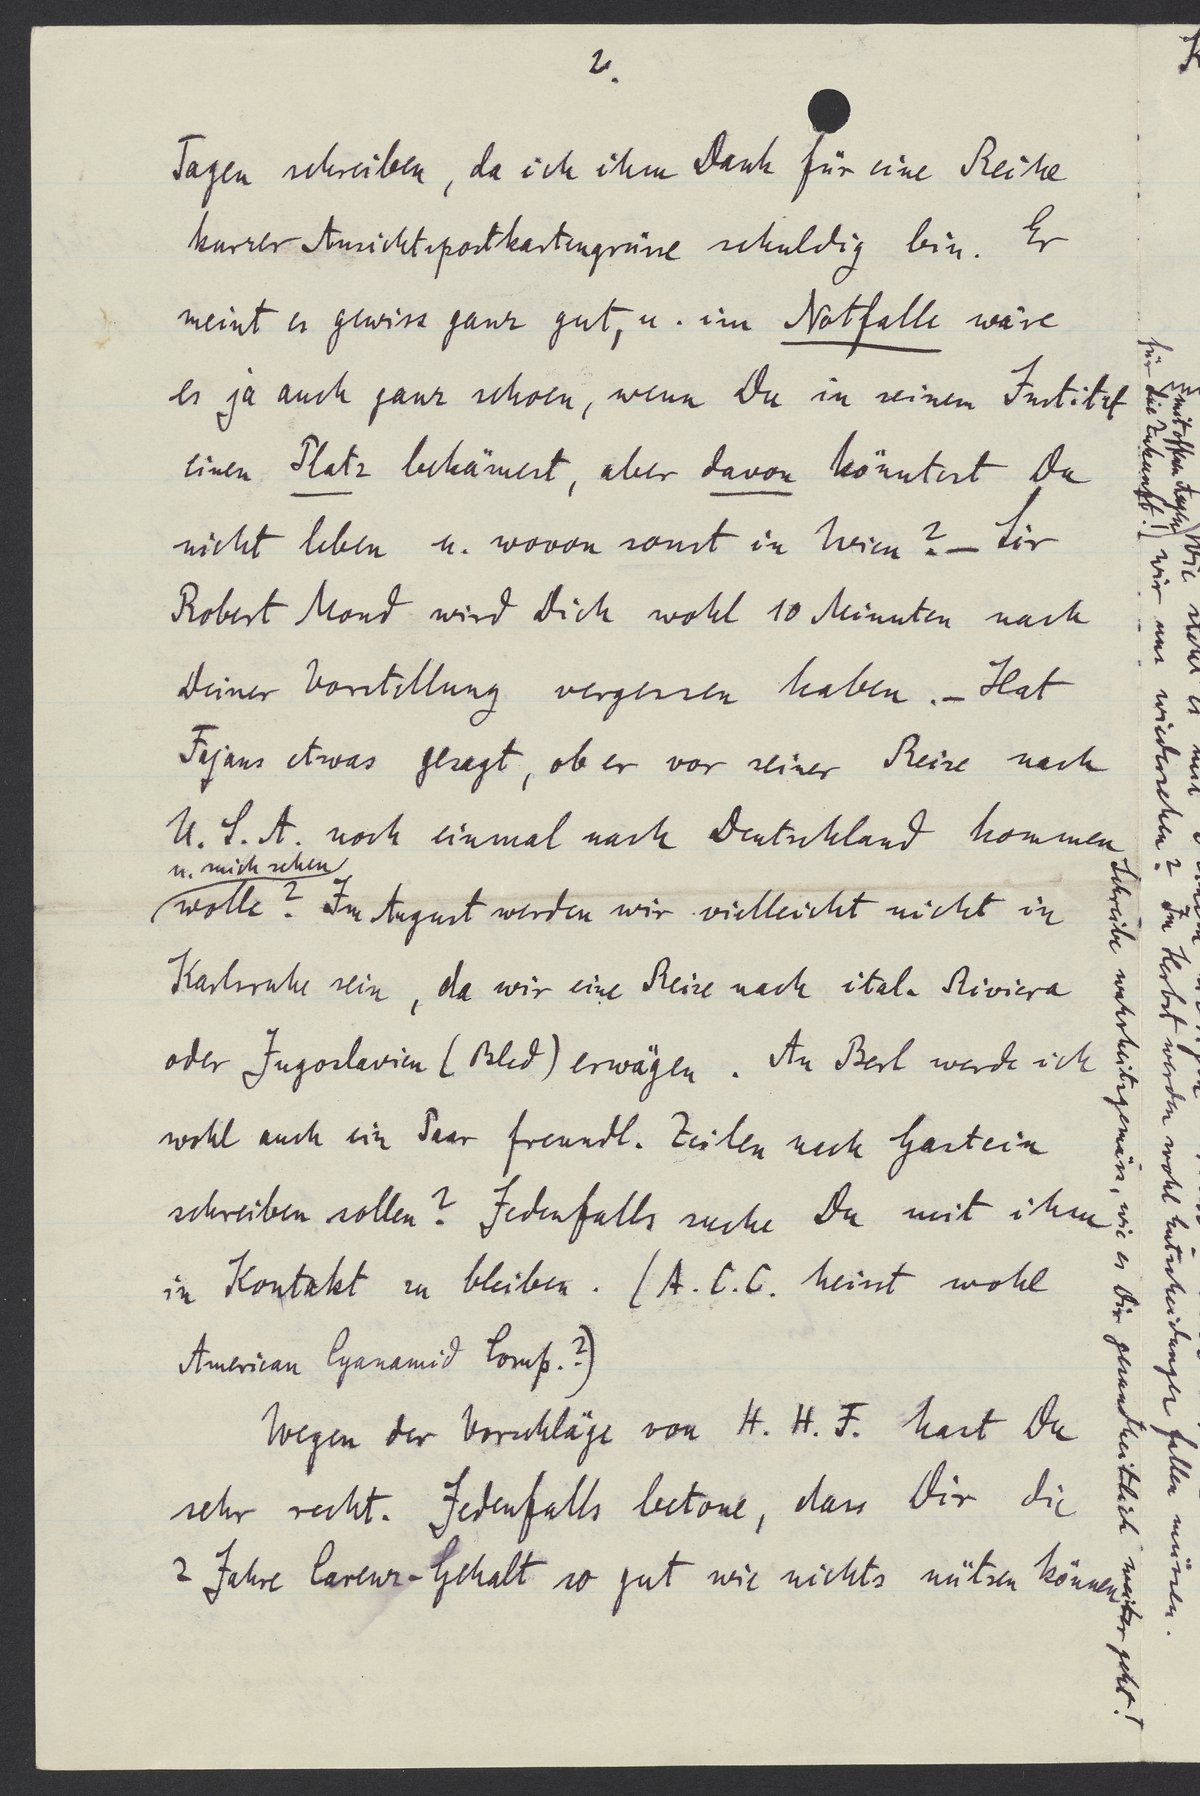 2.
Tagen schreiben, da ich ihm Dank für eine Reihe
kurzer Ansichtspostkartengrüsse schuldig bin. Er
meint es gewiss ganz gut, u. im Notfalle wäre
es ja auch ganz schoen, wenn Du in seinem Institut
einen Platz bekämest, aber davon könntest Du
nicht leben u. wovon sonst in Wien? – Sir
Robert Mond wird Dich wohl 10 Minuten nach
Deiner Vorstellung vergessen haben. – Hat
Fajans etwas gesagt, ob er vor seiner Reise nach
U.S.A. noch einmal nach Deutschland kommen
u. mich sehen
wolle? Im August werden wir vielleicht nicht in
Karlsruhe sein, da wir eine Reise nach ital. Riviera
oder Jugoslavien (Bled) erwägen. An Berl werde ich
wohl auch ein Paar freundl. Zeilen nach Gastein
schreiben sollen? Jedenfalls suche Du mit ihm
in Kontakt zu bleiben. (A.C.C. heisst wohl
American Cyanamid Comp.?)
Wegen der Vorschläge von H. H. F. hast Du
sehr recht. Jedenfalls betone, dass Dir die
2 Jahre Carenz-Gehalt so gut wie nichts nützen können
Schreibe wahrheitsgemäss, wie es Dir gesundheitlich weiter geht!
für die Zukunft! wir uns wiedersehen? Im Herbst werden wohl Entscheidungen fallen müssen.
mit offen Augen Wie steht es mit